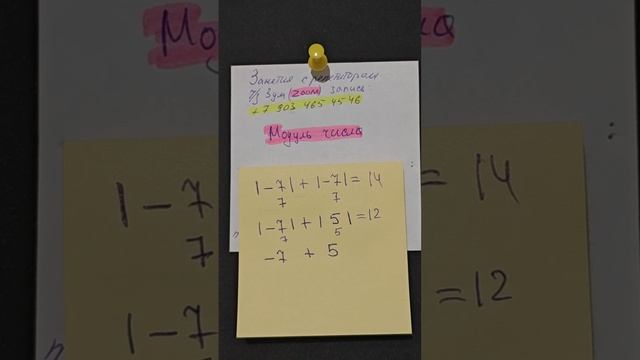 Занятия с репетитором
ч/з Зум (ZOOM) запись
+7 903 465 45 46
Модуль числа
|-7| + |-7| = 14
7 7
|-7| + |5| = 12
7 5
-7 + 5